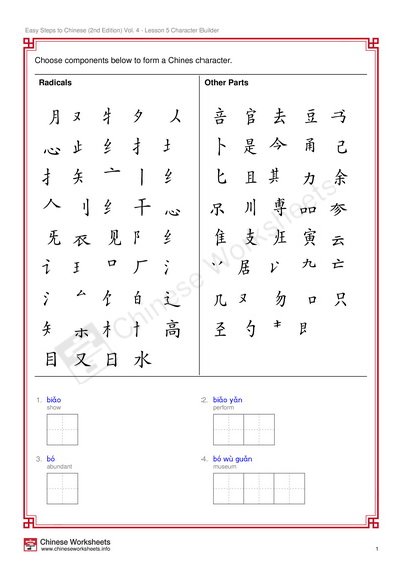 Easy Steps to Chinese (2nd Edition) Vol. 4 - Lesson 5 Character Builder
Choose components below to form a Chines character.
Radicals
Other Parts
月 ㄡ 牜 夕 人
咅 官 去 豆 丂
心 止 纟 扌 土
卜 是 今 甬 己
扌 矢 亠 丨 纟
匕 且 其 力 余
人 刂 纟 干 心
尔 川 専 品 参
旡 衣 见 阝 纟
隹 支 非 寅 云
讠 王 口 厂 氵
丷 居 九 亡
氵 𠂉 饣 白 辶
几 又 勿 口 只
矢 木 忄 高
圣 勺
目 又 日 水
Chinese Worksheets
1. biǎo
show
2. biǎo yǎn
perform
3. bó
abundant
4. bó wù guǎn
museum
Chinese Worksheets
www.chineseworksheets.info
1